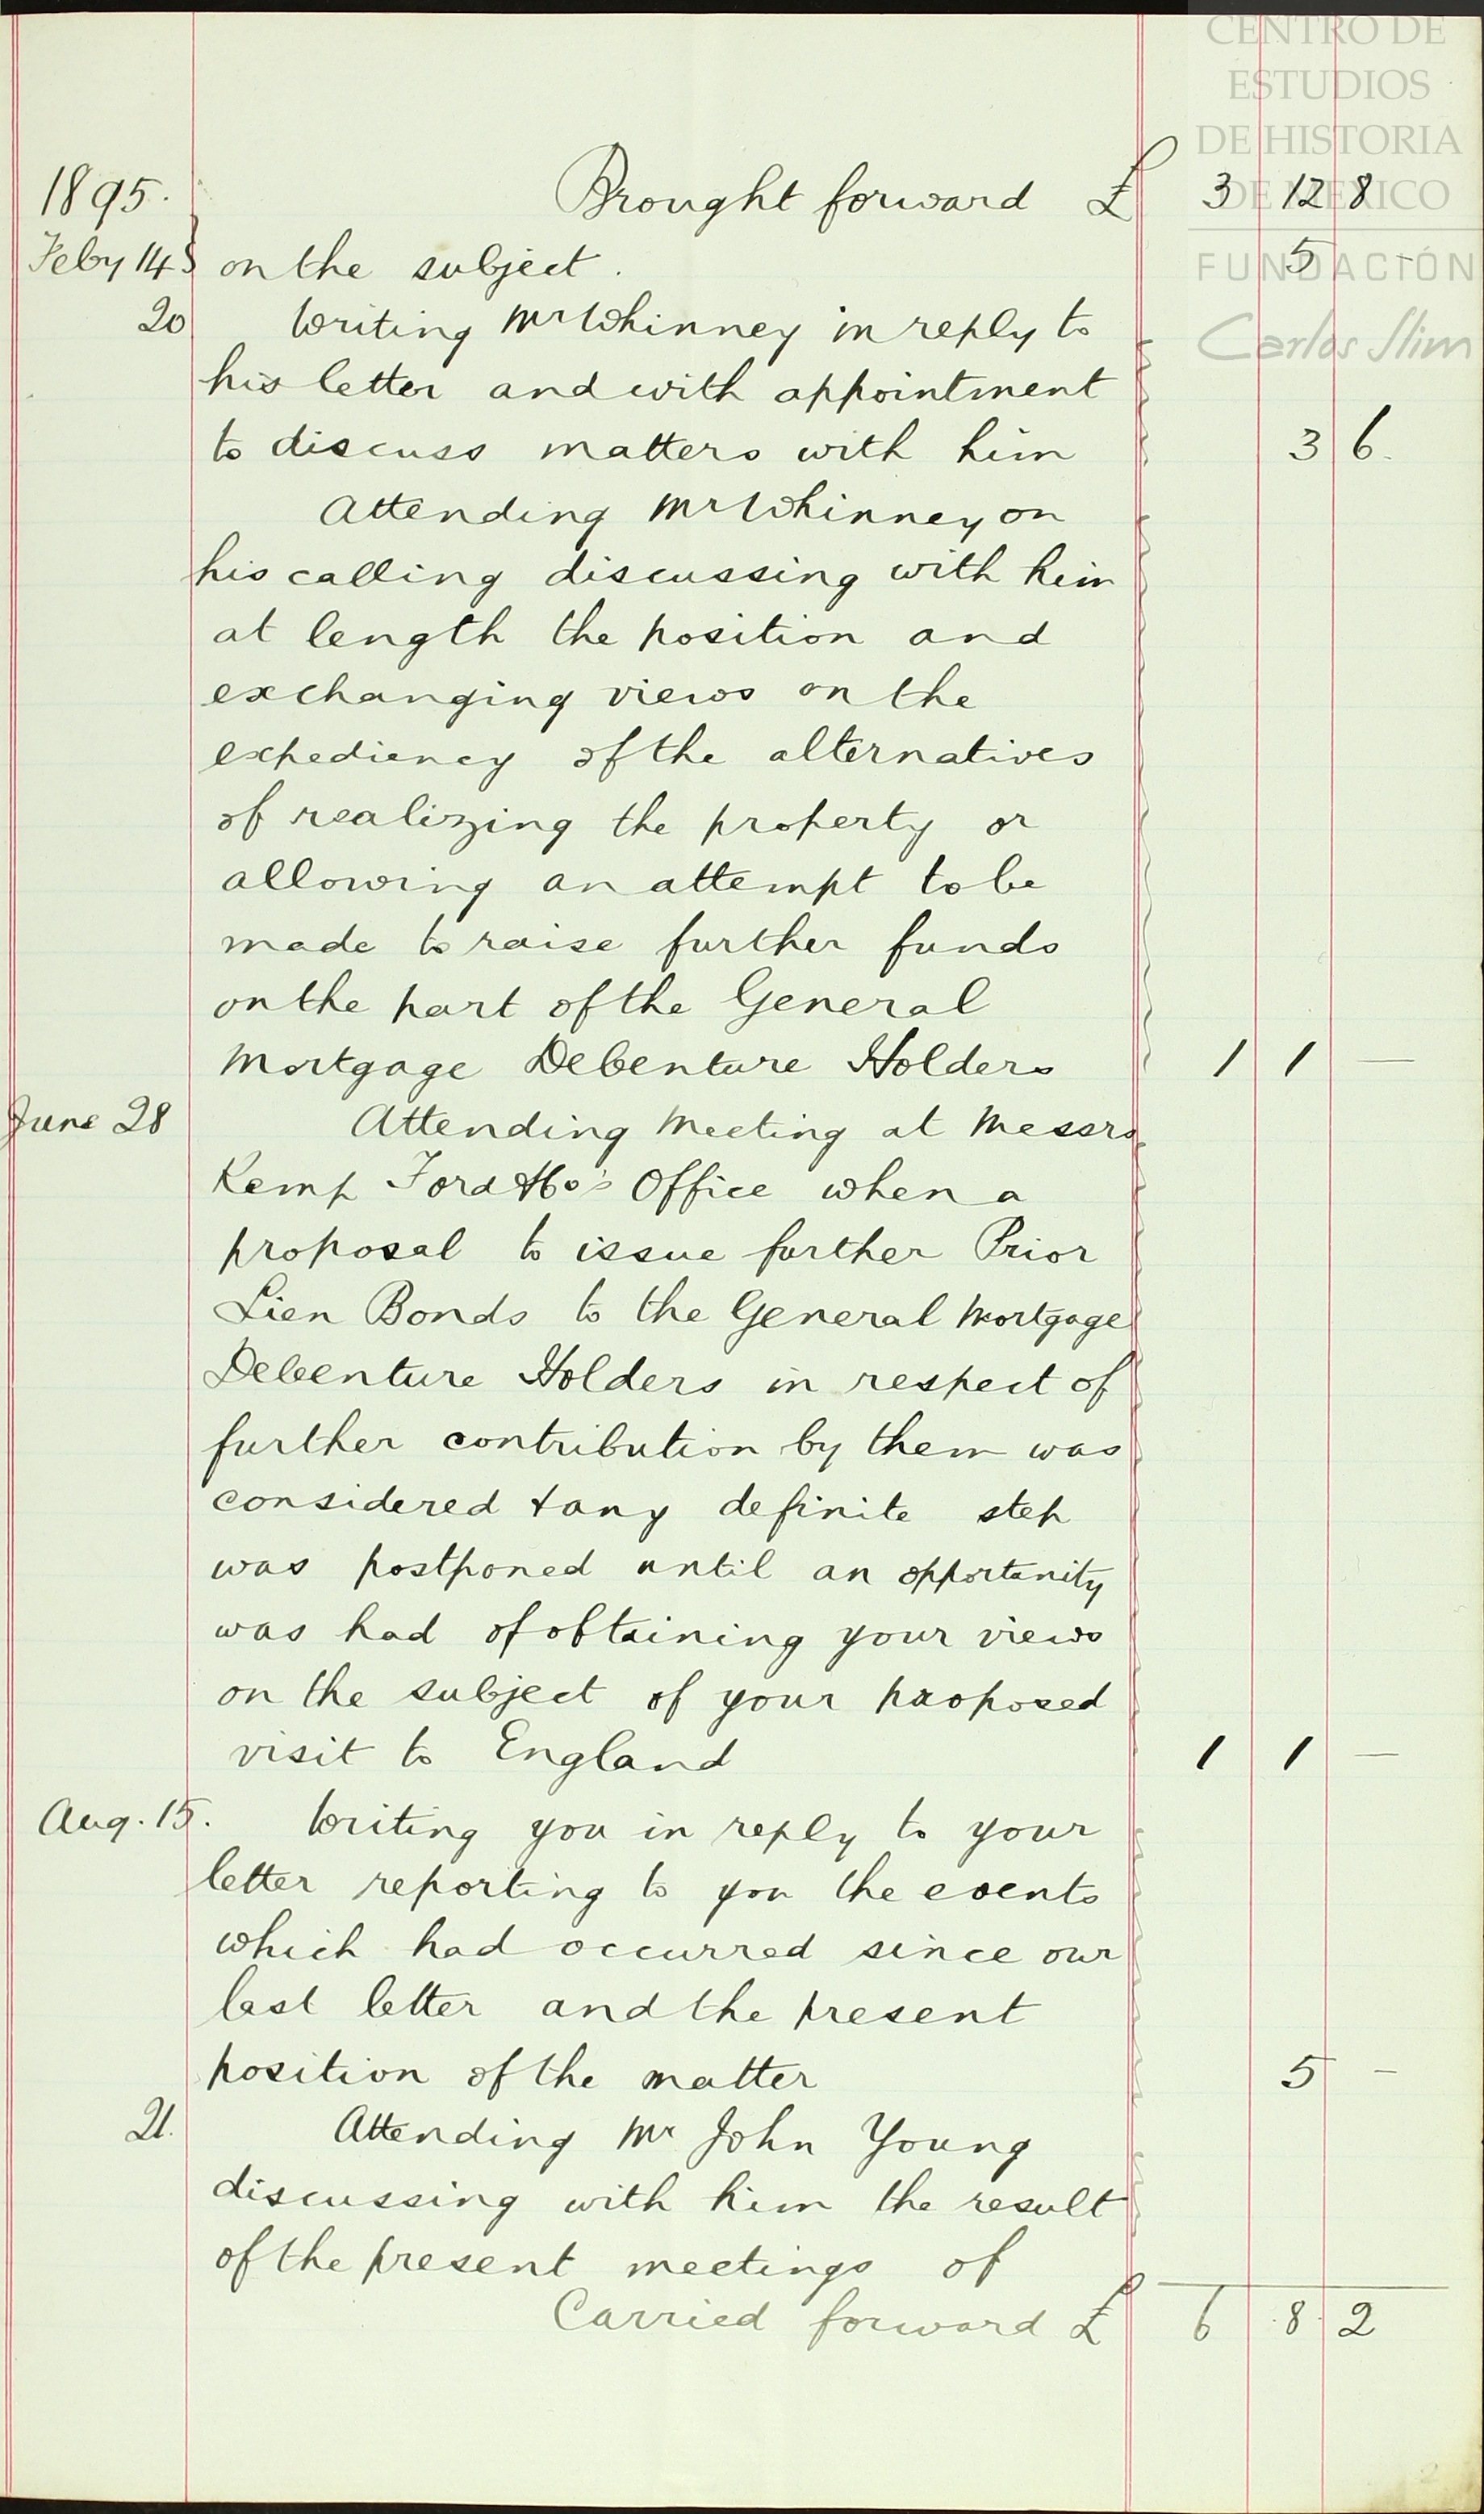 CENTRO DE
ESTUDIOS
DE HISTORIA
DE MÉXICO
FUNDACIÓN
Carlos Slim
1895. Brought forward £ 3 12 8
Feby 14 on the subject. 5 -
20 Writing Mr Whinney in reply to
his letter and with appointment
to discuss matters with him 3 6.
Attending Mr Whinney on
his calling discussing with him
at length the position and
exchanging views on the
expediency of the alternatives
of realizing the property or
allowing an attempt to be
made to raise further funds
on the part of the General
Mortgage Debenture Holders 1 1 —
June 28 Attending Meeting at Messrs
Kemp Ford & Co's Office when a
proposal to issue further Prior
Lien Bonds to the General Mortgage
Debenture Holders in respect of
further contribution by them was
considered & any definite step
was postponed until an opportunity
was had of obtaining your views
on the subject of your proposed
visit to England 1 1 —
Aug. 15. Writing you in reply to your
letter reporting to you the events
which had occurred since our
last letter and the present
position of the matter 5 -
21. Attending Mr John Young
discussing with him the result
of the present meetings of
Carried forward £ 6 8 2